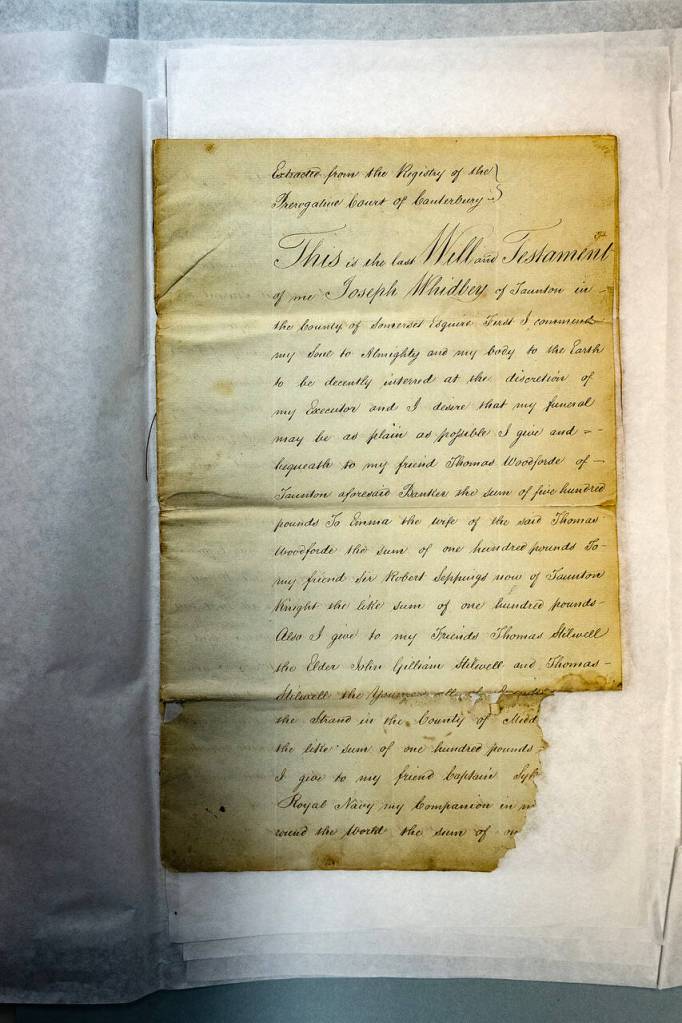 Extracted from the Registry of the
Prerogative Court of Canterbury
This is the last Will and Testament
of me Joseph Whidbey of Taunton in
the County of Somerset Esquire First I commend
my Soul to Almighty and my body to the Earth
to be decently interred at the discretion of
my Executor and I desire that my funeral
may be as plain as possible I give and =
bequeath to my friend Thomas Woodforde of
Taunton aforesaid Banker the sum of five hundred
pounds To Emma the wife of the said Thomas
Woodforde the sum of one hundred pounds To
my friend Sir Robert Seppings now of Taunton
Knight the like sum of one hundred pounds
Also I give to my Friends Thomas Stilwell
the Elder John Gilliam Stilwell and Thomas
Stilwell the Younger all of
the Strand in the County of Midd
the like sum of one hundred pounds
I give to my friend Captain
Royal Navy my Companion in
round the World the sum of